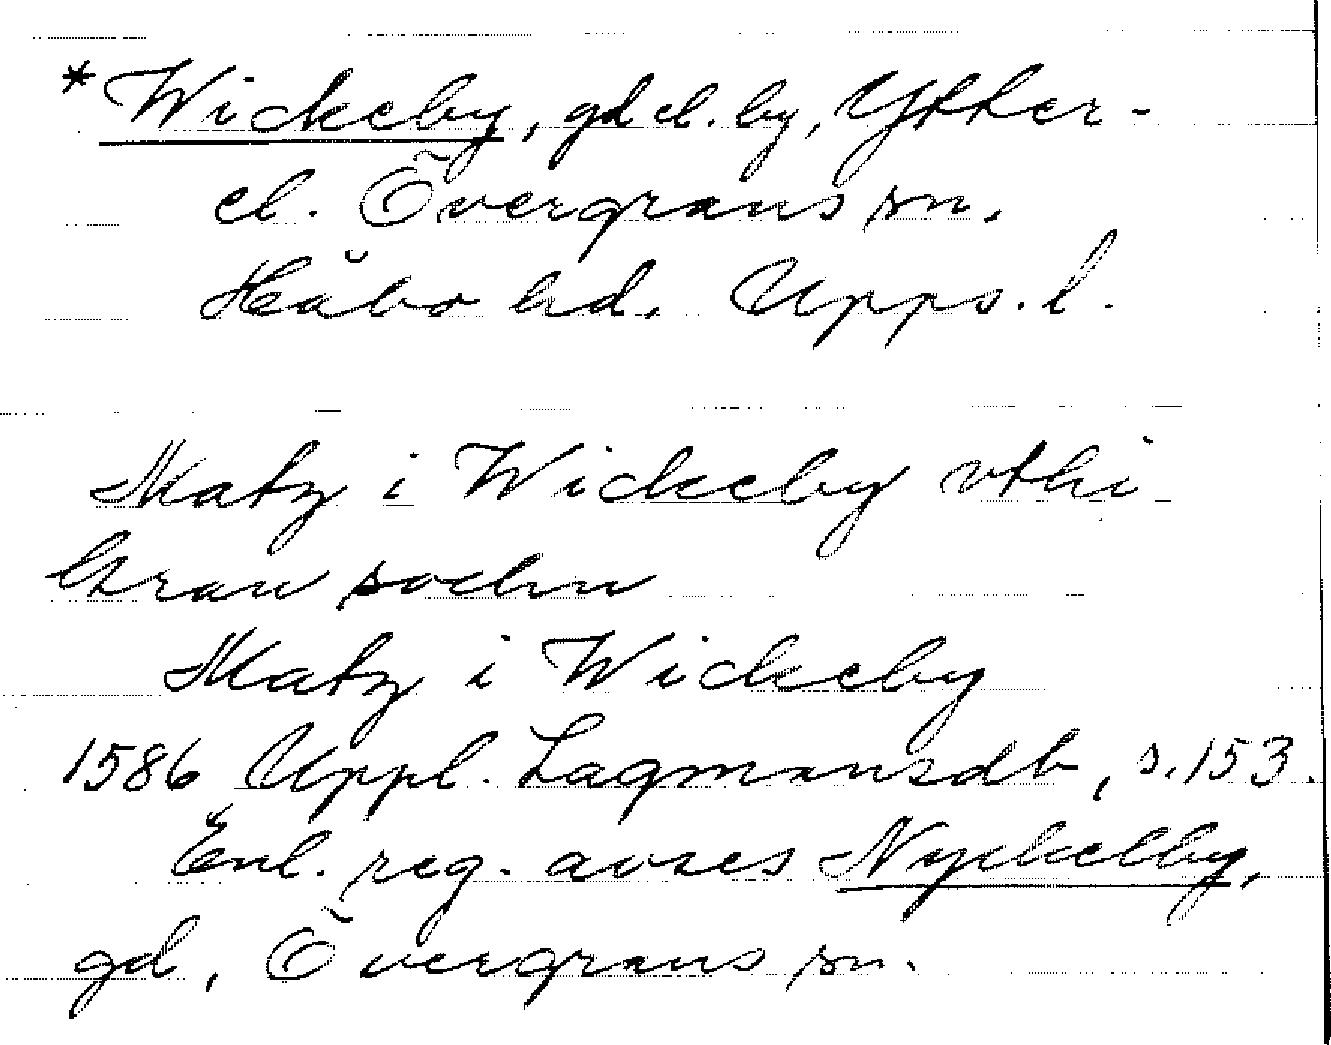 *Wickeby, gd el. by, Ytter-
el. Övergrans sn.
Håbo hd. Upps. l.
Matz i Wickeby vthi
Gran sochn
Matz i Wickeby
1586 Uppl. Lagmansdb, s. 153.
Enl. reg. avses Nyckelby,
gd, Övergrans sn.